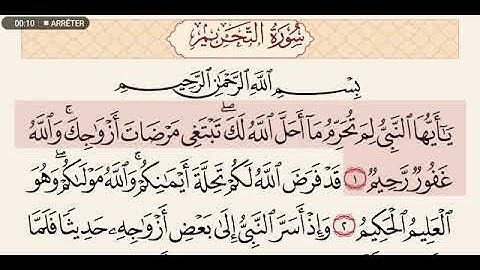 00:10 ■ ARRÊTER
سُورَةُ التَّحْرِيمِ
بِسْمِ اللَّهِ الرَّحْمَٰنِ الرَّحِيمِ
يَٰٓأَيُّهَا ٱلنَّبِىُّ لِمَ تُحَرِّمُ مَآ أَحَلَّ ٱللَّهُ لَكَ ۖ تَبْتَغِى مَرْضَاتَ أَزْوَٰجِكَ ۚ وَٱللَّهُ
غَفُورٌ رَّحِيمٌ ١ قَدْ فَرَضَ ٱللَّهُ لَكُمْ تَحِلَّةَ أَيْمَٰنِكُمْ ۚ وَٱللَّهُ مَوْلَىٰكُمْ ۖ وَهُوَ
ٱلْعَلِيمُ ٱلْحَكِيمُ ٢ وَإِذْ أَسَرَّ ٱلنَّبِىُّ إِلَىٰ بَعْضِ أَزْوَٰجِهِۦ حَدِيثًا فَلَمَّا